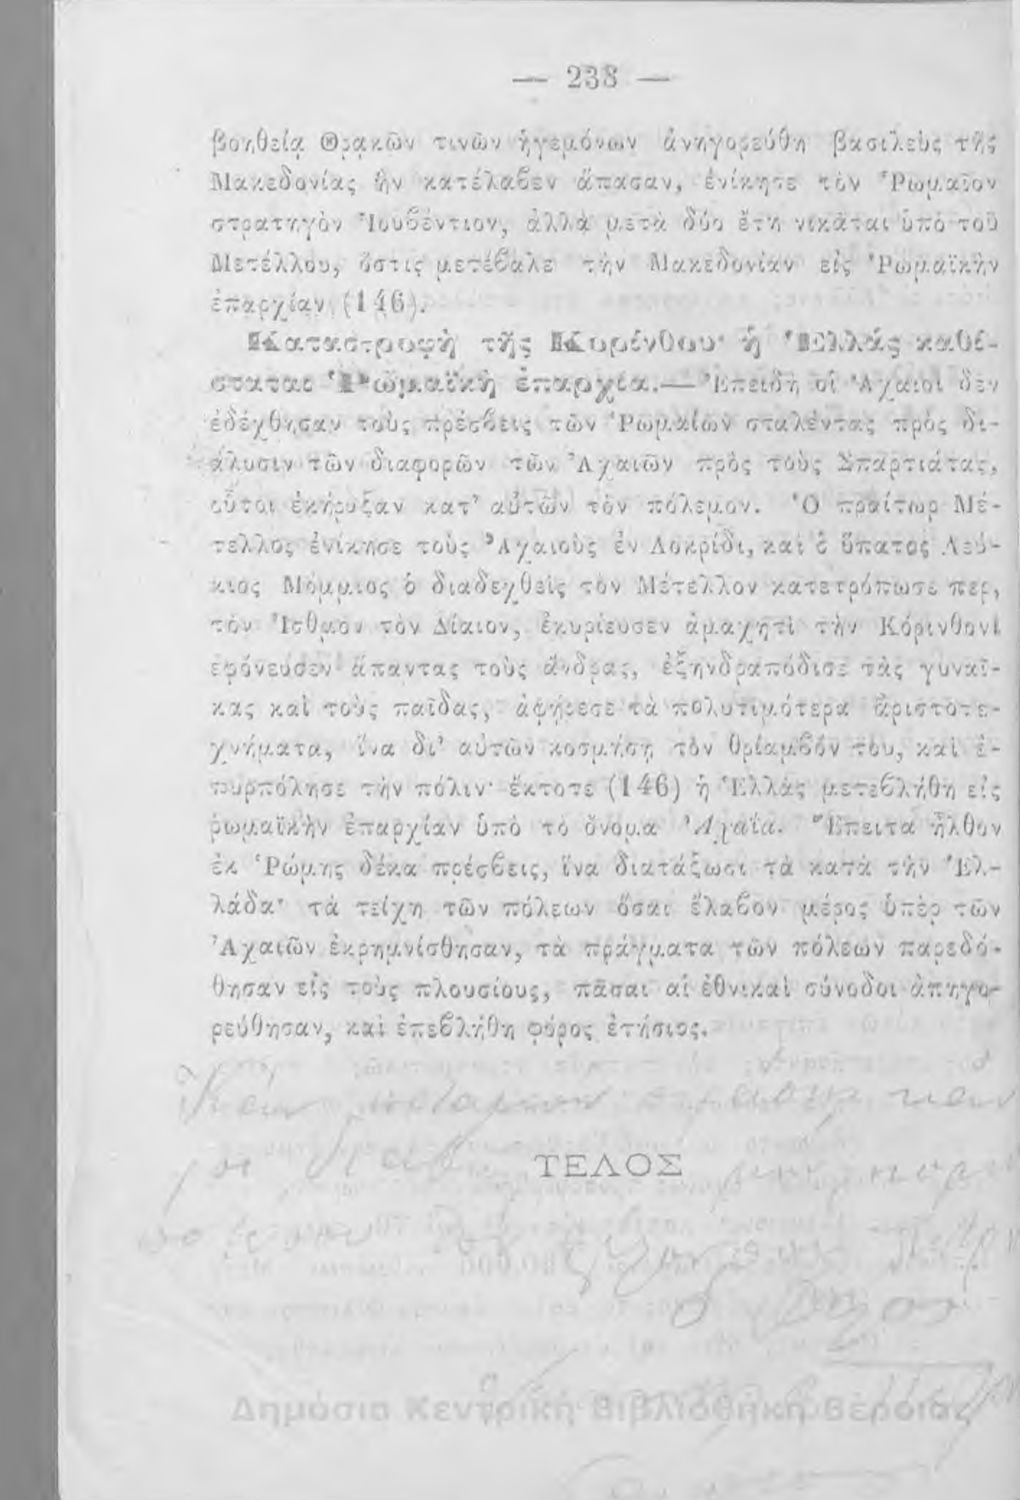 — 238 —
βοηθείᾳ Θρᾳκῶν τινῶν ἡγεμόνων ἀνηγορεύθη βασιλεὺς τῆς
Μακεδονίας ἣν κατέλαβεν ἅπασαν, ἐνίκησε τὸν Ῥωμαῖον
στρατηγὸν Ἰουβέντιον, ἀλλὰ μετὰ δύο ἔτη νικᾶται ὑπὸ τοῦ
Μετέλλου, ὅστις μετέβαλε τὴν Μακεδονίαν εἰς Ῥωμαϊκὴν
ἐπαρχίαν (146).
Καταστροφὴ τῆς Κορίνθου· ἡ Ἑλλὰς καθί-
σταται Ῥωμαϊκὴ ἐπαρχία.— Ἐπειδὴ οἱ Ἀχαιοὶ δὲν
ἐδέχθησαν τοὺς πρέσβεις τῶν Ῥωμαίων σταλέντας πρὸς δι-
άλυσιν τῶν διαφορῶν τῶν Ἀχαιῶν πρὸς τοὺς Σπαρτιάτας,
οὗτοι ἐκήρυξαν κατ' αὐτῶν τὸν πόλεμον. Ὁ πραίτωρ Μέ-
τελλος ἐνίκησε τοὺς Ἀχαιοὺς ἐν Λοκρίδι, καὶ ὁ ὕπατος Λεύ-
κιος Μόμμιος ὁ διαδεχθεὶς τὸν Μέτελλον κατετρόπωσε περὶ
τὸν Ἰσθμὸν τὸν Δίαιον, ἐκυρίευσεν ἀμαχητὶ τὴν Κόρινθον
ἐφόνευσεν ἅπαντας τοὺς ἄνδρας, ἐξηνδραπόδισε τὰς γυναῖ-
κας καὶ τοὺς παῖδας, ἀφῄρεσε τὰ πολυτιμότερα ἀριστοτε-
χνήματα, ἵνα δι' αὐτῶν κοσμήσῃ τὸν θρίαμβόν του, καὶ ἐ-
πυρπόλησε τὴν πόλιν· ἔκτοτε (146) ἡ Ἑλλὰς μετεβλήθη εἰς
ῥωμαϊκὴν ἐπαρχίαν ὑπὸ τὸ ὄνομα Ἀχαΐα. Ἔπειτα ἦλθον
ἐκ Ῥώμης δέκα πρέσβεις, ἵνα διατάξωσι τὰ κατὰ τὴν Ἑλ-
λάδα· τὰ τείχη τῶν πόλεων ὅσαι ἔλαβον μέρος ὑπὲρ τῶν
Ἀχαιῶν ἐκρημνίσθησαν, τὰ πράγματα τῶν πόλεων παρεδό-
θησαν εἰς τοὺς πλουσίους, πᾶσαι αἱ ἐθνικαὶ σύνοδοι ἀπηγο-
ρεύθησαν, καὶ ἐπεβλήθη φόρος ἐτήσιος.
ΤΕΛΟΣ
Δημόσια Κεντρική Βιβλιοθήκη Βέροιας